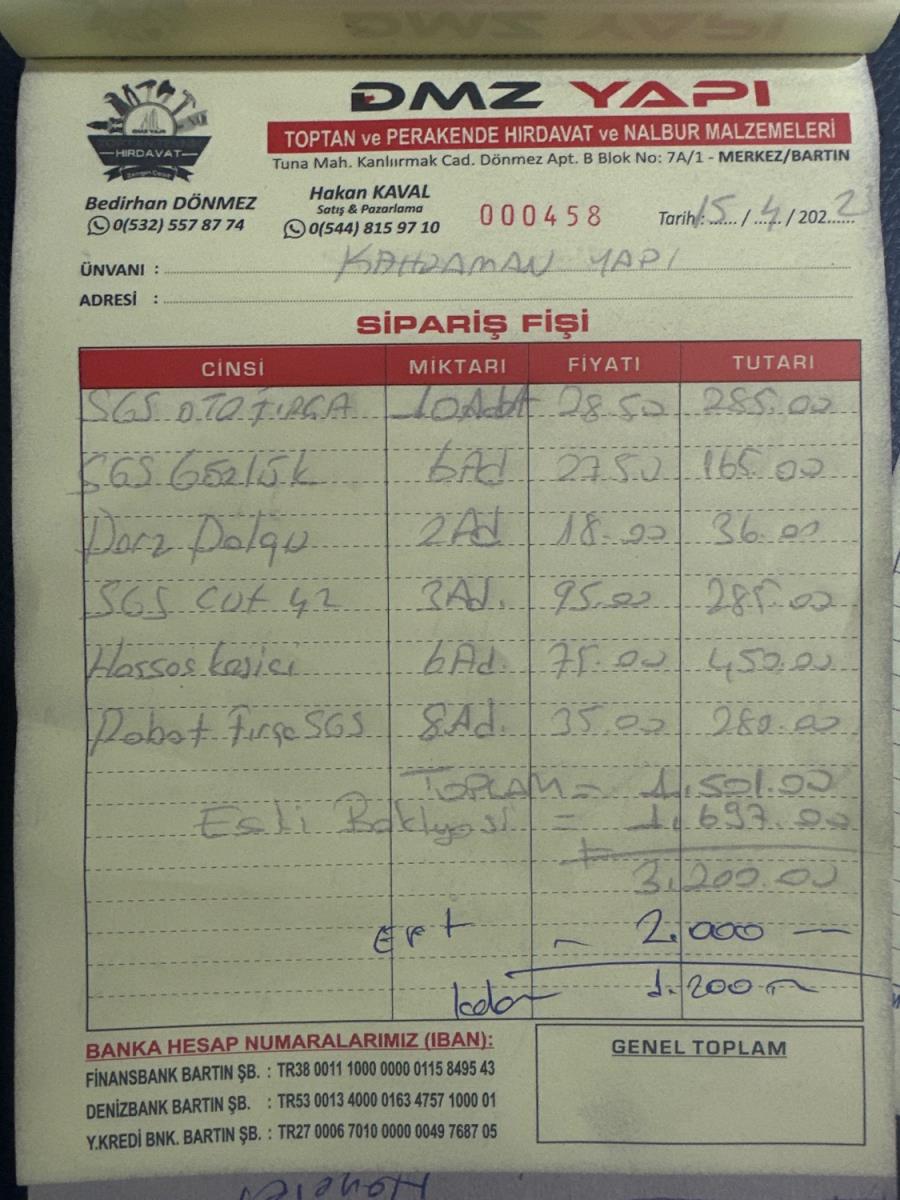 DMZ YAPI
HIRDAVAT
TOPTAN ve PERAKENDE HIRDAVAT ve NALBUR MALZEMELERİ
Tuna Mah. Kanlıırmak Cad. Dönmez Apt. B Blok No: 7A/1 - MERKEZ/BARTIN
Bedirhan DÖNMEZ
0(532) 557 87 74
Hakan KAVAL
Satış & Pazarlama
0(544) 815 97 10
000458
Tarih: 15 / 4 / 2023
ÜNVANI : KAHRAMAN YAPI
ADRESİ :
SİPARİŞ FİŞİ
CİNSİ MİKTARI FİYATI TUTARI
SGS OTO FIRÇA 10 Adet 28.50 285.00
SGS Gözlük 6Ad 27.50 165.00
Derz Dolgu 2Ad 18.00 36.00
SGS CUT 42 3Ad. 95.00 285.00
Hassas kesici 6Ad. 75.00 450.00
Robot Fırça SGS 8Ad. 35.00 280.00
TOPLAM = 1.501.00
Eski Bakiyesi = 1.697.00
+
3.200.00
Eft - 2.000 —
kalan 1.200
BANKA HESAP NUMARALARIMIZ (IBAN):
FİNANSBANK BARTIN ŞB. : TR38 0011 1000 0000 0115 8495 43
DENİZBANK BARTIN ŞB. : TR53 0013 4000 0163 4757 1000 01
Y.KREDİ BNK. BARTIN ŞB. : TR27 0006 7010 0000 0049 7687 05
GENEL TOPLAM